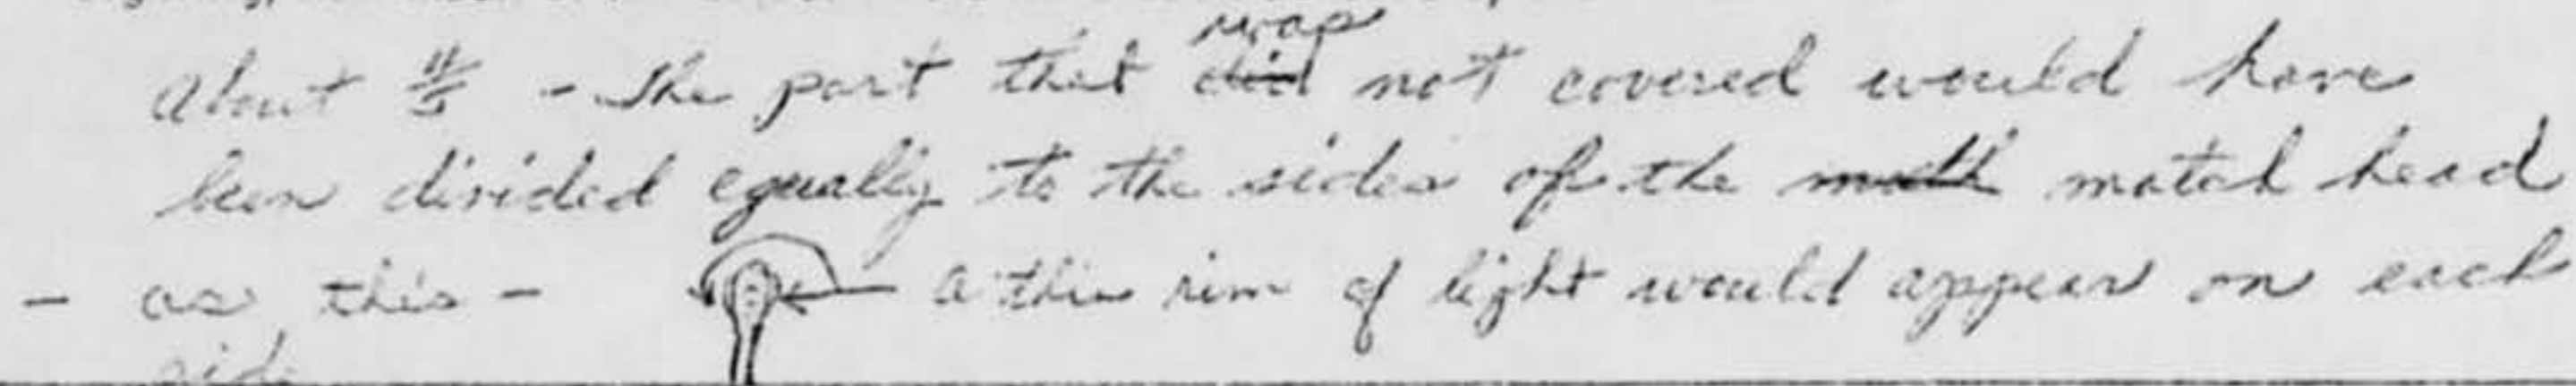 was
About 4/5 - The part that did not covered would have
been divided equally to the sides of the math match head
- as this - A thin rim of light would appear on each
side